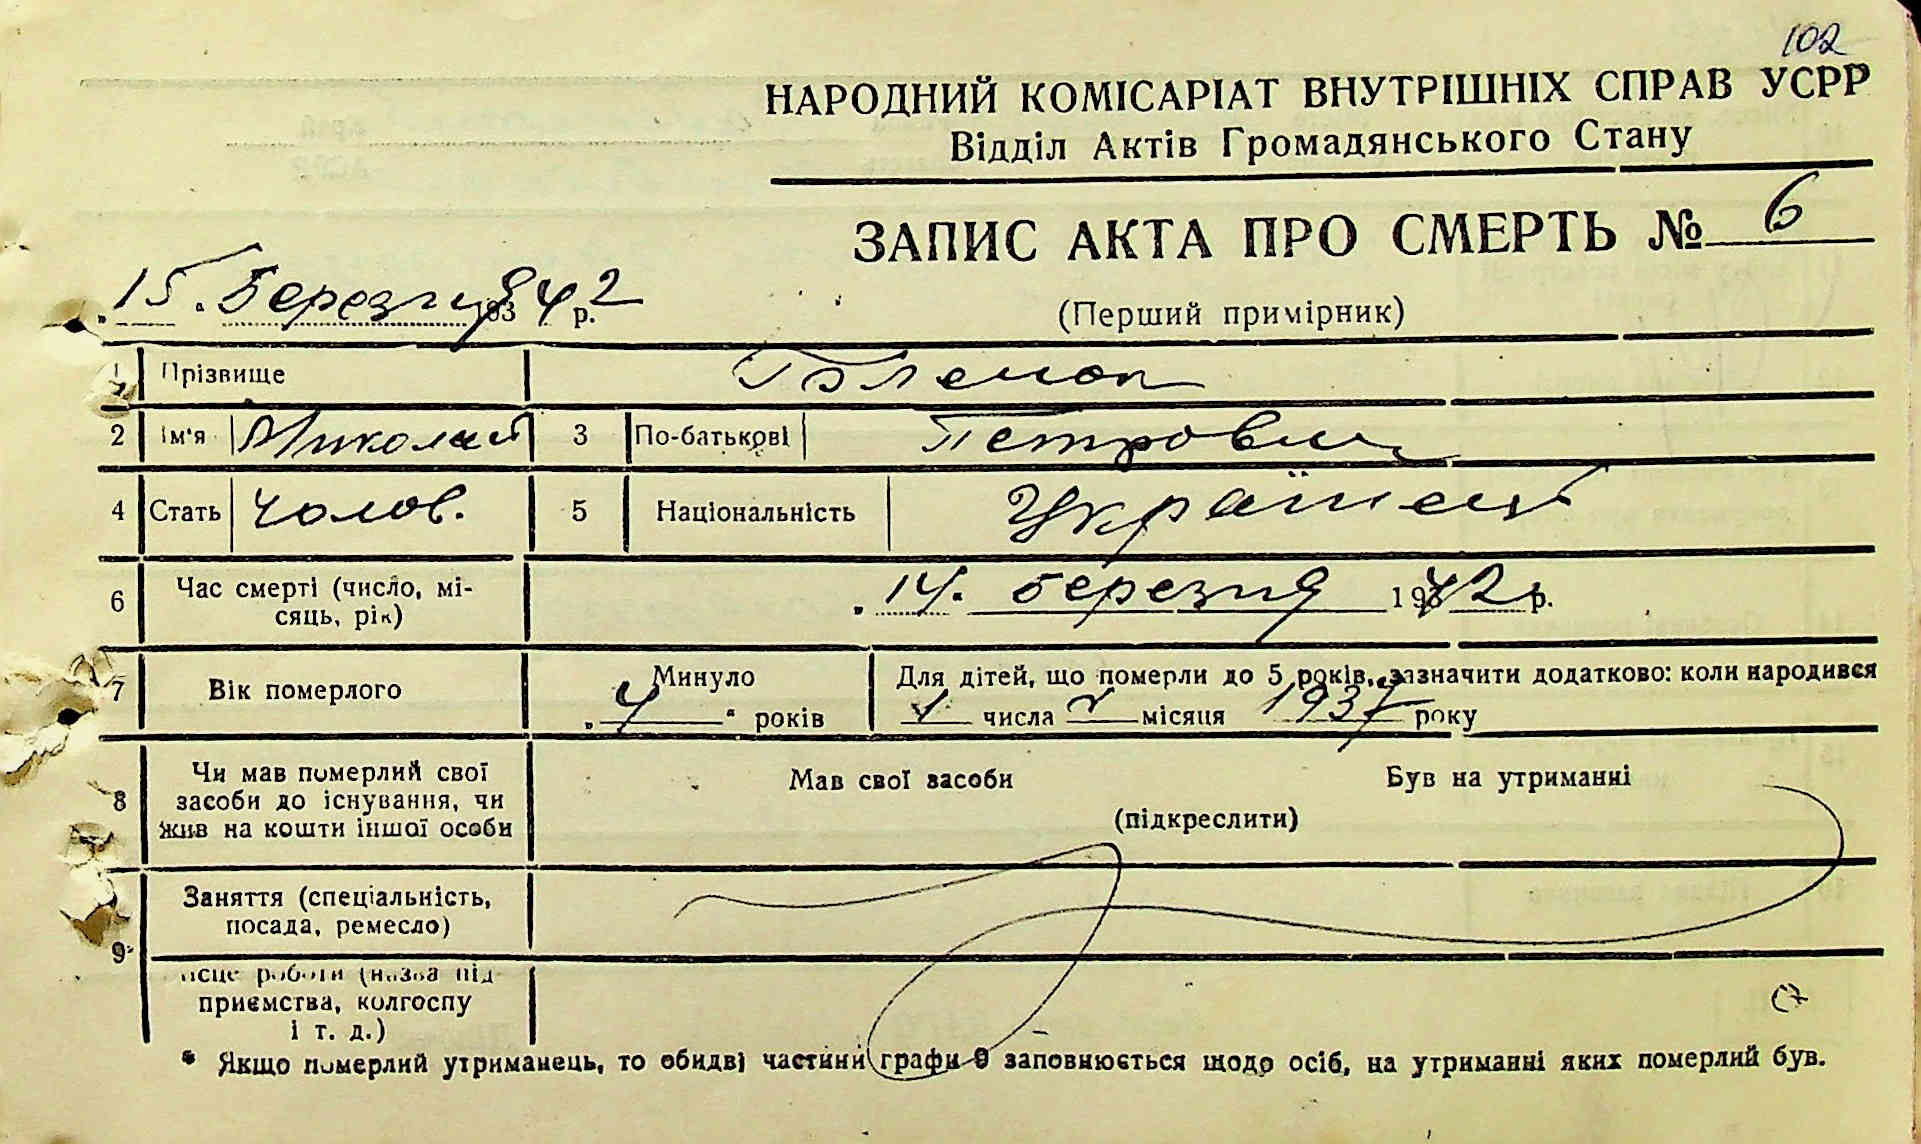 102
НАРОДНИЙ КОМІСАРІАТ ВНУТРІШНІХ СПРАВ УСРР
Відділ Актів Громадянського Стану
ЗАПИС АКТА ПРО СМЕРТЬ № 6
„ 15 . " Березня 1942 р.
(Перший примірник)
1 Прізвище
2 Ім'я Миколай 3 По-батькові Петрович
4 Стать чолов. 5 Національність Українец
6 Час смерті (число, місяць, рік) „ 14. березня 1942 р.
7 Вік померлого Минуло „ 4 " років Для дітей, що померли до 5 років, зазначити додатково: коли народився
1 числа місяця 1937 року
8 Чи мав померлий свої засоби до існування, чи жив на кошти іншої особи Мав свої засоби Був на утриманні
(підкреслити)
9 Заняття (спеціальність, посада, ремесло)
місце роботи (назва підприємства, колгоспу і т. д.)
* Якщо померлий утриманець, то обидві частини графи 9 заповнюється щодо осіб, на утриманні яких померлий був.